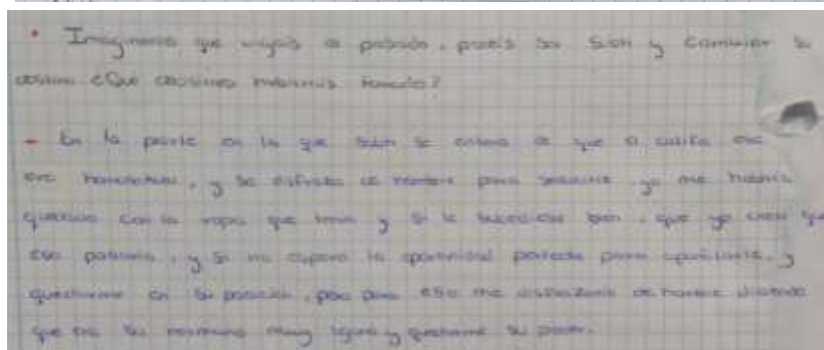 • Imaginaros que viajais al pasado, podeis ser Sish y cambiar su
destino ¿Que decisiones habriais tomado?
- En la parte en la que se entera de que el califa ese
era homosexual, y se disfraza de hombre para seducirle, yo me habria
quedado con la ropa que tenia y si le sedujese bien, que yo creo que
eso pasaria, y si no espero la oportunidad perfecta para apuñalarle, y
quedarme en su posicion, pero para eso me disfrazaria de hombre diciendo
que era su hermano muy lejano y quedarme su poder.